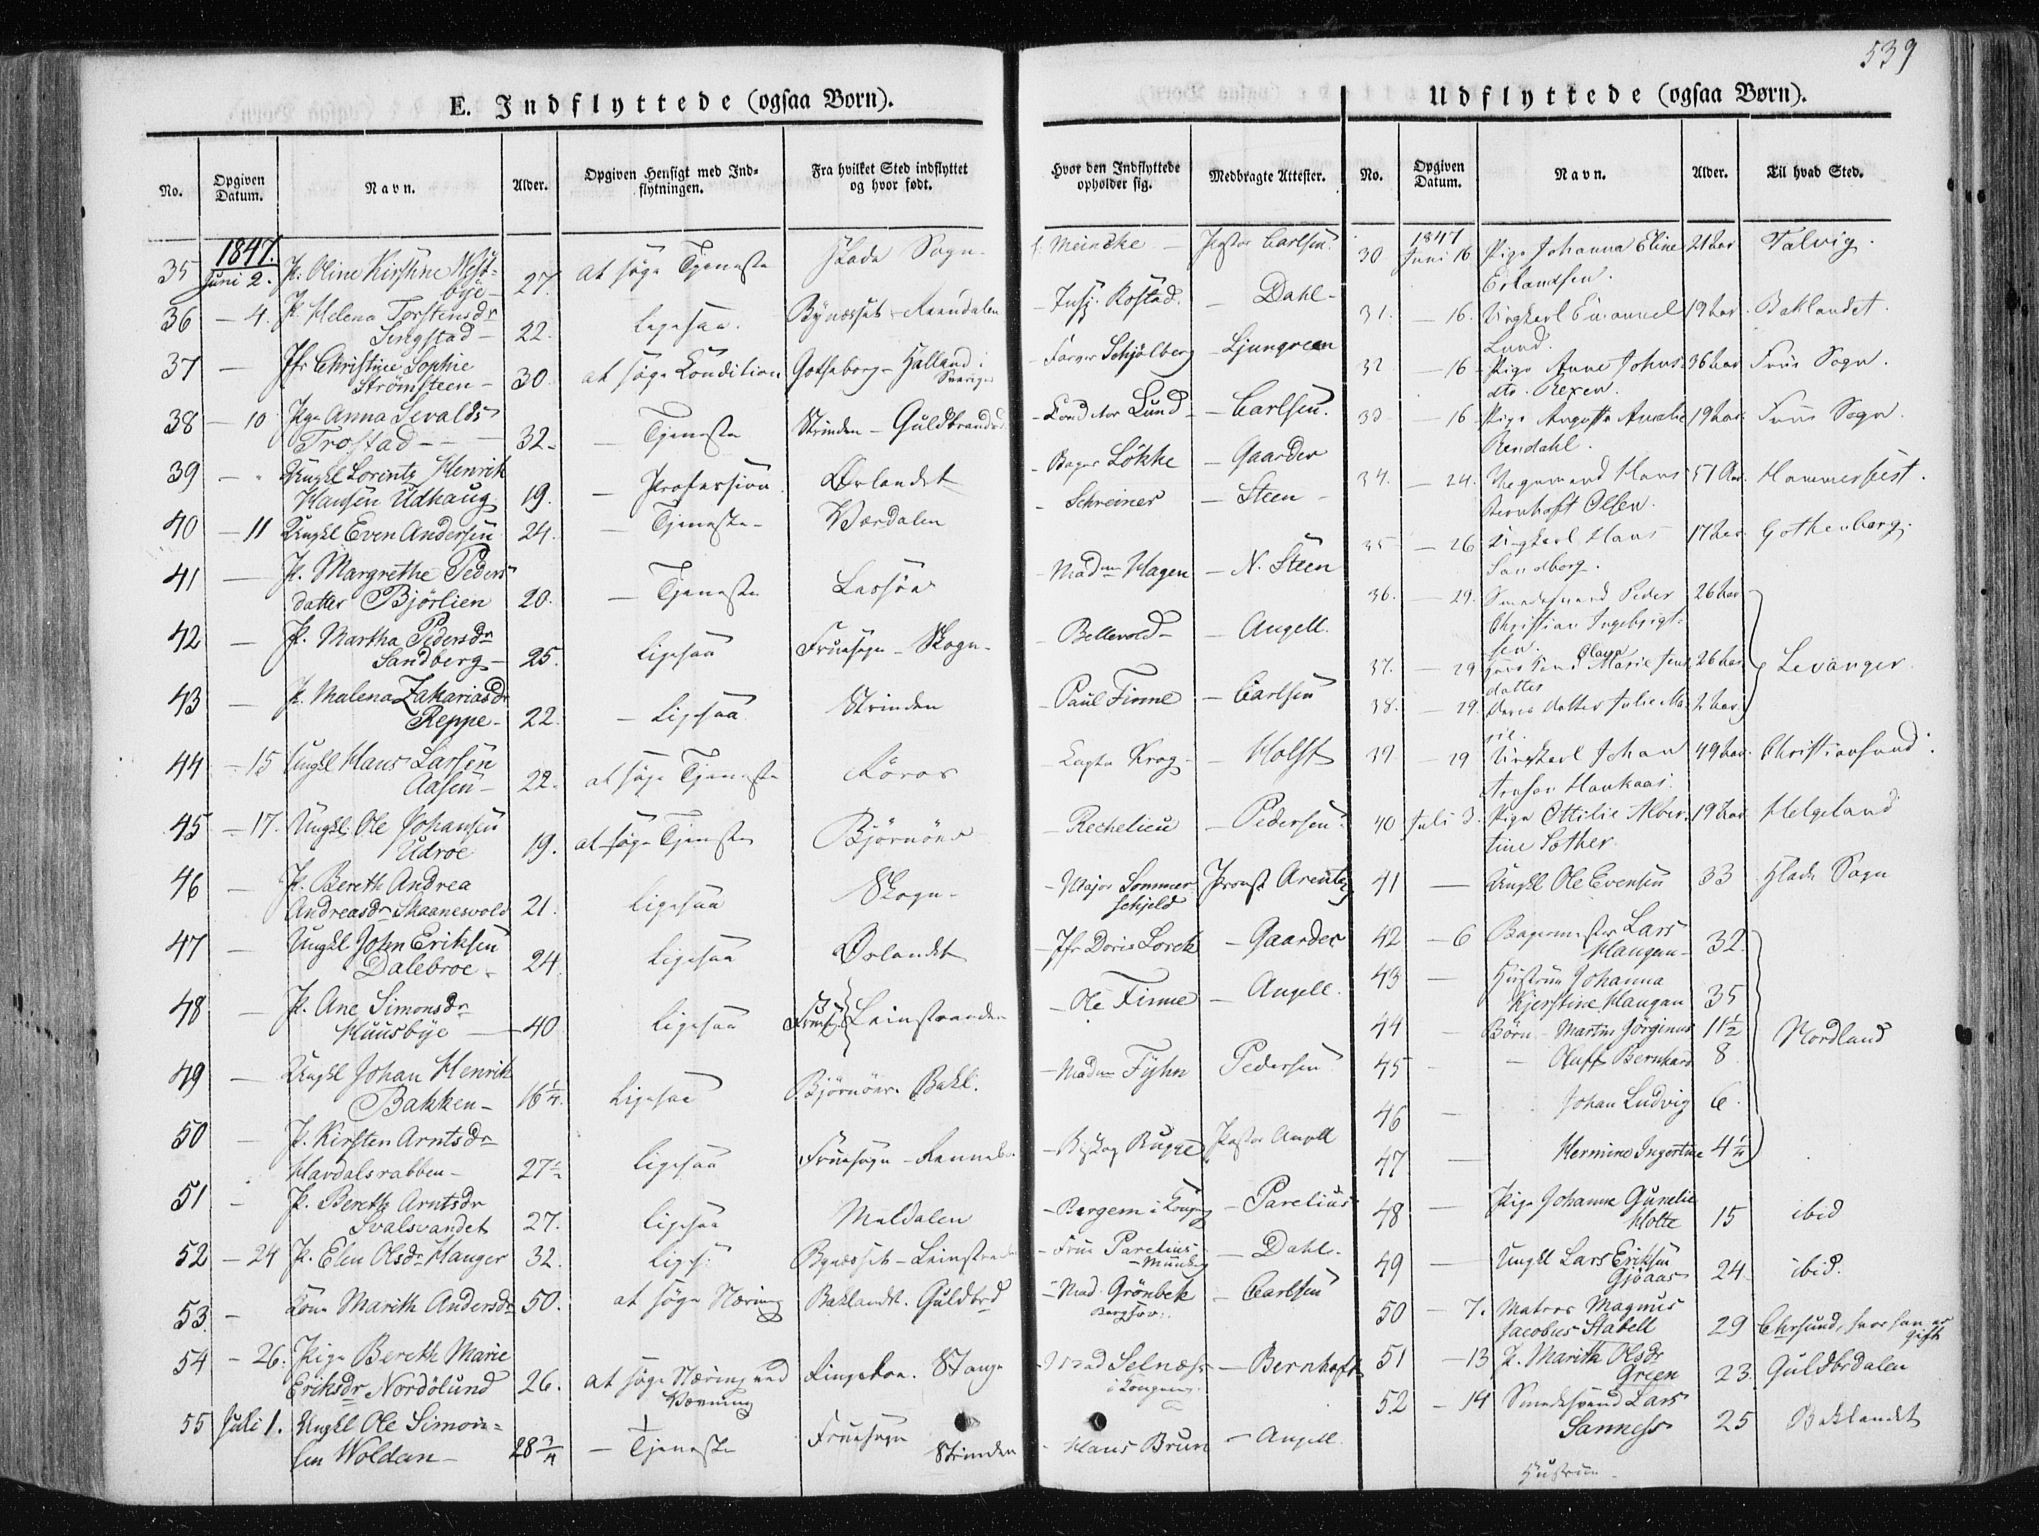 539
E. Indflyttede (ogsaa Born).
No.
Opgiven Datum.
Navn.
Alder.
Opgiven Hensigt med Indflytningen.
Fra hvilket Sted indflyttet og hvor født.
Hvor den Indflyttede opholder sig.
Medbragte Attester.
1847.
35 Juni 2. P. Oline Kirstine West-
bye 27. at søge Tjeneste Lade Sogn. Meincke Pastor Carlsen.
36 — 4. P. Helena Torstensdr
Singstad — 22. Ligesaa. Bynæsset Insp. Rostad. — Dahl —
37 — Jfr Christine Sophie
Strömsteen — 30. at søge Condition Gotheborg — Halland i Sverige — Farver Schjølberg — Ljungreen
38 — 10 Pige Anna Sevalds
Trostad — 32. — Tjeneste Strinden — Guldbrandsd. — Conditor Lund — Carlsen.
39 — Ungkl Lorintz Henrik
Hansen Udhaug 19. — Profession Ørlandet — Bager Løkke — Gaarder
40 — 11 Ungkl Even Andersen 24. — Tjeneste — Værdalen — Schreiner — Steen —
41 — P. Margrethe Peders
datter Bjørlien 20. — Tjeneste — Madm Hagen — N. Steen
42 — P. Martha Pedersdr
Sandberg — 25. Ligesaa Fruesogn — Skogn — — Bellevold — — Angell.
43 — P. Malena Zakariasdr
Reppe — 22. — Ligesaa Strinden — Paul Finne — Carlsen
44 — 15 Ungkl Hans Larsen
Aasen — 22. at søge Tjeneste Røros — Capt. Krog — Holst
45 — 17. Ungkl. Ole Johansen
Udroe 19. at søge Tjeneste Bjørnöer — Rechelieu — Pedersen.
46 — P. Bereth Andrea
Andreasdr Skaanesvold 21. Ligesaa Skogn — — Major Sommerschjeld Provst Arentz
47 — Ungkl John Eriksen
Dalebroe — 24. Ligesaa Ørlandet — Jfr Doris Lorck — Gaarder
48 — P. Ane Simonsdr
Huusbye — 40 Ligesaa Fruesogn Leinstranden — Ole Finne — Angell.
49 — Ungkl Johan Henrik
Bakken — 16¼. Ligesaa Bjørnöer. Bakl. — Madm Fyhn Pedersen.
50 — P. Kirsten Arntsdr
Havdalsrabben — 27½ Ligesaa Fruesogn — Rennebo — Biskop Bugge Pastor Angell
51 — P. Bereth Arntsdr
Svalsvandet 27. Ligesaa Meldalen — Bergem i Kongsg — Parelius
52 — 24 P. Elen Olsdr Hanger 32. Ligs. Bynesset — Leinstrand — Frue Parelius Munkg — Dahl —
53. — Kone Marith Andersdr 50. at søge Næring Baklandt. Guldbrd — Mad. Grönbek — Carlsen
54 — 26. Pige Bereth Marie
Eriksdr Nordölund 26. at søge Næring ved Vævning Stange — Mad Selnæs i Kongens — Bernhoft
55 Juli 1. Ungkl Ole Simon-
sen Woldan — 28¾ — Tjeneste Fruesogn Strinden — Hans Brun — Angell.
Udflyttede (ogsaa Børn).
No.
Opgiven Datum.
Navn.
Alder.
Til hvad Sted.
1847
30. Juni 16 Pige Johanna Eline 21 Aar. Talvig.
Erlandsen.
31. — 16. Ungkarl Emanuel 19 Aar. Baklandet.
Lund.
32 — 16 Pige Anne Johns- 36 Aar Frue Sogn.
dtr. Rexen.
33 — 16 Pige Augusta Amalie 19 Aar. Frue Sogn.
Rendahl.
34. — 24. Hans 51 Aar. Hammerfest.
Bernhoft Olsen.
35 — 26 Ungkarl Hans 17 Aar Gothenborg.
Sandborg.
36. — 29. Smedesvend Peder 26 Aar
Christian Ingebrigt-
sen.
37. — 29 Olava Marie Jens 26 Aar Levanger.
datter
38. — 29. Deres datter Julie Ma- 2 Aar.
rie.
39 — 29 Ungkarl Johan 49 Aar. Christiansund.
40 Juli 3. Pige Ottilie Alber- 19 Aar Helgeland
tine Sæther.
41 — Ungkl Ole Evensen 33 Lade Sogn
42 — 6 Bagermester Lars
Haugan — 32.
43 — Hustrue Johanna
Kjerstine Haugan 35
44 — Børn — Martin Jörginus 11½ Nordland
45 — — Oluff Bernhard 8.
46 — Johan Ludvig 6.
47 — Hermine Ingertine 4¼
48 — Pige Johanna Gunelie
Holte 15 ibid
49 — Ungkl Lars Eriksen
Gjöaas 24. ibid.
50 — 7. Matros Magnus
Jacobus Stabell 29 Chrsund, hvor han er gift
51 — 13 P. Marith Olsdr
Green 23. Guldbrdalen
52 — 14 Smedesvend Lars
Sanness 25 Baklandet
Hustrue —